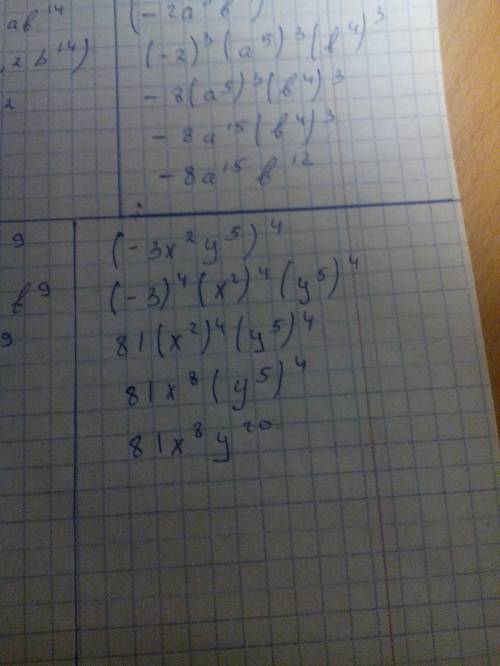 ab¹⁴
2b¹⁴)
2
(-2a
(-2)³(a⁵)³(b⁴)³
-8(a⁵)³(b⁴)³
-8a¹⁵(b⁴)³
-8a¹⁵b¹²
9
b⁹
9
(-3x²y⁵)⁴
(-3)⁴(x²)⁴(y⁵)⁴
81(x²)⁴(y⁵)⁴
81x⁸(y⁵)⁴
81x⁸y²⁰